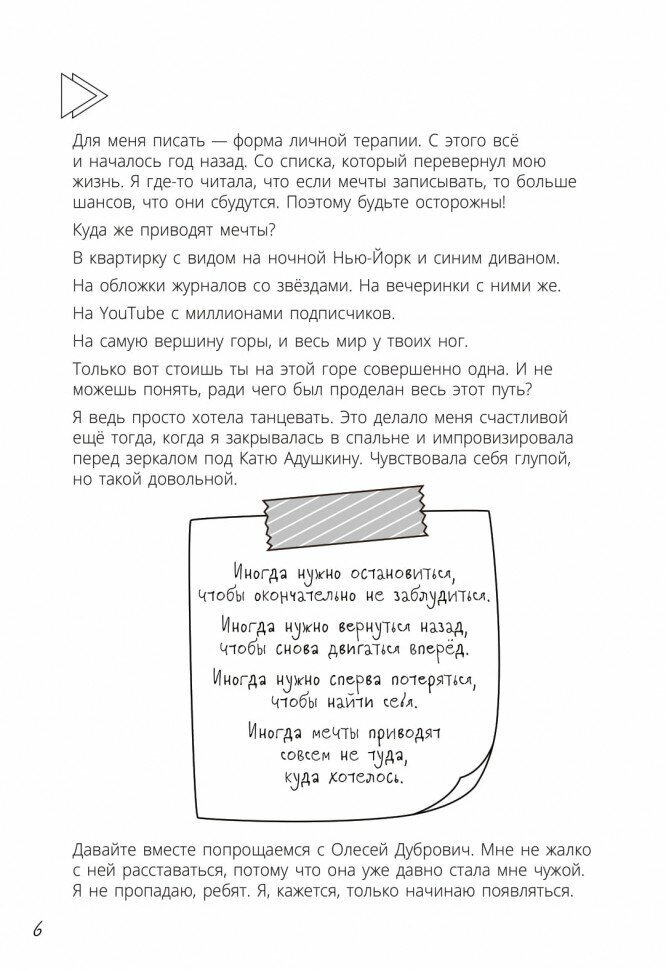 Для меня писать — форма личной терапии. С этого всё
и началось год назад. Со списка, который перевернул мою
жизнь. Я где-то читала, что если мечты записывать, то больше
шансов, что они сбудутся. Поэтому будьте осторожны!
Куда же приводят мечты?
В квартирку с видом на ночной Нью-Йорк и синим диваном.
На обложки журналов со звёздами. На вечеринки с ними же.
На YouTube с миллионами подписчиков.
На самую вершину горы, и весь мир у твоих ног.
Только вот стоишь ты на этой горе совершенно одна. И не
можешь понять, ради чего был проделан весь этот путь?
Я ведь просто хотела танцевать. Это делало меня счастливой
ещё тогда, когда я закрывалась в спальне и импровизировала
перед зеркалом под Катю Адушкину. Чувствовала себя глупой,
но такой довольной.
Иногда нужно остановиться,
чтобы окончательно не заблудиться.
Иногда нужно вернуться назад,
чтобы снова двигаться вперёд.
Иногда нужно сперва потеряться,
чтобы найти себя.
Иногда мечты приводят
совсем не туда,
куда хотелось.
Давайте вместе попрощаемся с Олесей Дубрович. Мне не жалко
с ней расставаться, потому что она уже давно стала мне чужой.
Я не пропадаю, ребят. Я, кажется, только начинаю появляться.
6